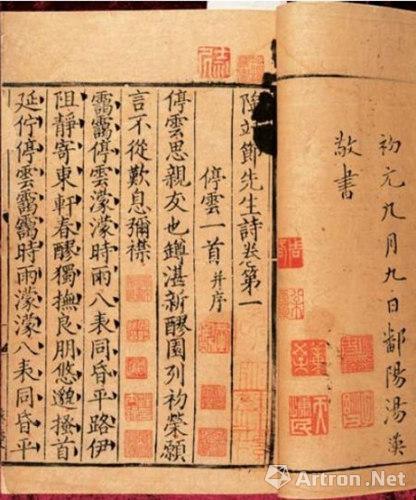 初元九月九日鄱陽湯漢
敬書
陶靖節先生詩卷第一
停雲一首 并序
停雲思親友也罇湛新醪園列初榮願
言不從歎息彌襟
靄靄停雲濛濛時雨八表同昏平路伊
阻靜寄東軒春醪獨撫良朋悠邈搔首
延佇停雲靄靄時雨濛濛八表同昏平
Artron.Net